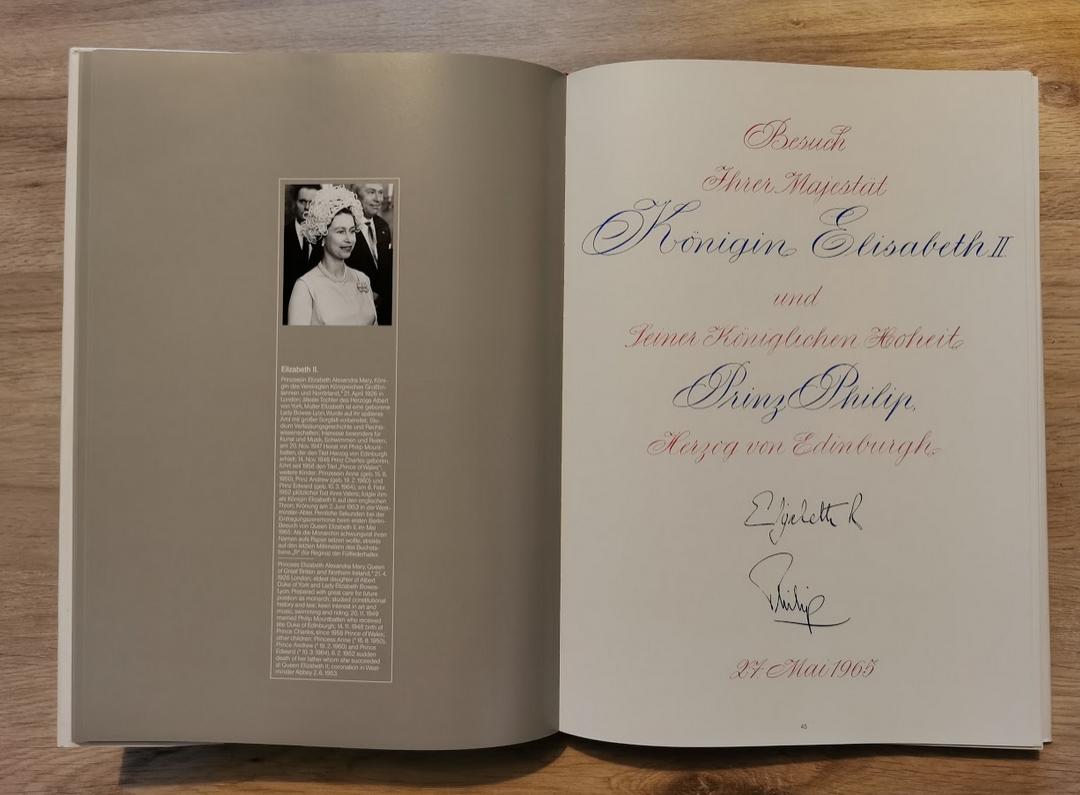 Elizabeth II.
Prinzessin Elizabeth Alexandra Mary, Köni-
gin des Vereinigten Königreiches Großbri-
tannien und Nordirland, * 21. April 1926 in
London; älteste Tochter des Herzogs Albert
von York, Mutter Elizabeth ist eine geborene
Lady Bowes-Lyon. Wurde auf ihr späteres
Amt mit großer Sorgfalt vorbereitet; Stu-
dium Verfassungsgeschichte und Rechts-
wissenschaften; Interesse besonders für
Kunst und Musik, Schwimmen und Reiten;
am 20. Nov. 1947 Heirat mit Philip Mount-
batten, der den Titel Herzog von Edinburgh
erhielt; 14. Nov. 1948 Prinz Charles geboren,
führt seit 1958 den Titel „Prince of Wales“,
weitere Kinder: Prinzessin Anne (geb. 15. 8.
1950), Prinz Andrew (geb. 19. 2. 1960) und
Prinz Edward (geb. 10. 3. 1964); am 6. Febr.
1952 plötzlicher Tod ihres Vaters; folgte ihm
als Königin Elizabeth II. auf den englischen
Thron; Krönung am 2. Juni 1953 in der West-
minster-Abtei. Peinliche Sekunden bei der
Eintragungszeremonie beim ersten Berlin-
Besuch von Queen Elizabeth II. im Mai
1965: Als die Monarchin schwungvoll ihren
Namen aufs Papier setzen wollte, streikte
auf den letzten Millimetern des Buchsta-
bens „R“ (für Regina) der Füllfederhalter.
Princess Elizabeth Alexandra Mary, Queen
of Great Britain and Northern Ireland, * 21. 4.
1926 London; eldest daughter of Albert
Duke of York and Lady Elizabeth Bowes-
Lyon. Prepared with great care for future
position as monarch; studied constitutional
history and law; keen interest in art and
music, swimming and riding; 20. 11. 1949
married Philip Mountbatten who received
title Duke of Edinburgh; 14. 11. 1948 birth of
Prince Charles, since 1958 Prince of Wales;
other children: Princess Anne (* 15. 8. 1950),
Prince Andrew (* 19. 2. 1960) and Prince
Edward (* 10. 3. 1964); 6. 2. 1952 sudden
death of her father whom she succeeded
at Queen Elizabeth II.; coronation in West-
minster Abbey 2. 6. 1953.
Besuch
Ihrer Majestät
Königin Elisabeth II
und
Seiner Königlichen Hoheit
Prinz Philip,
Herzog von Edinburgh
Elizabeth R
Philip
27. Mai 1965
45